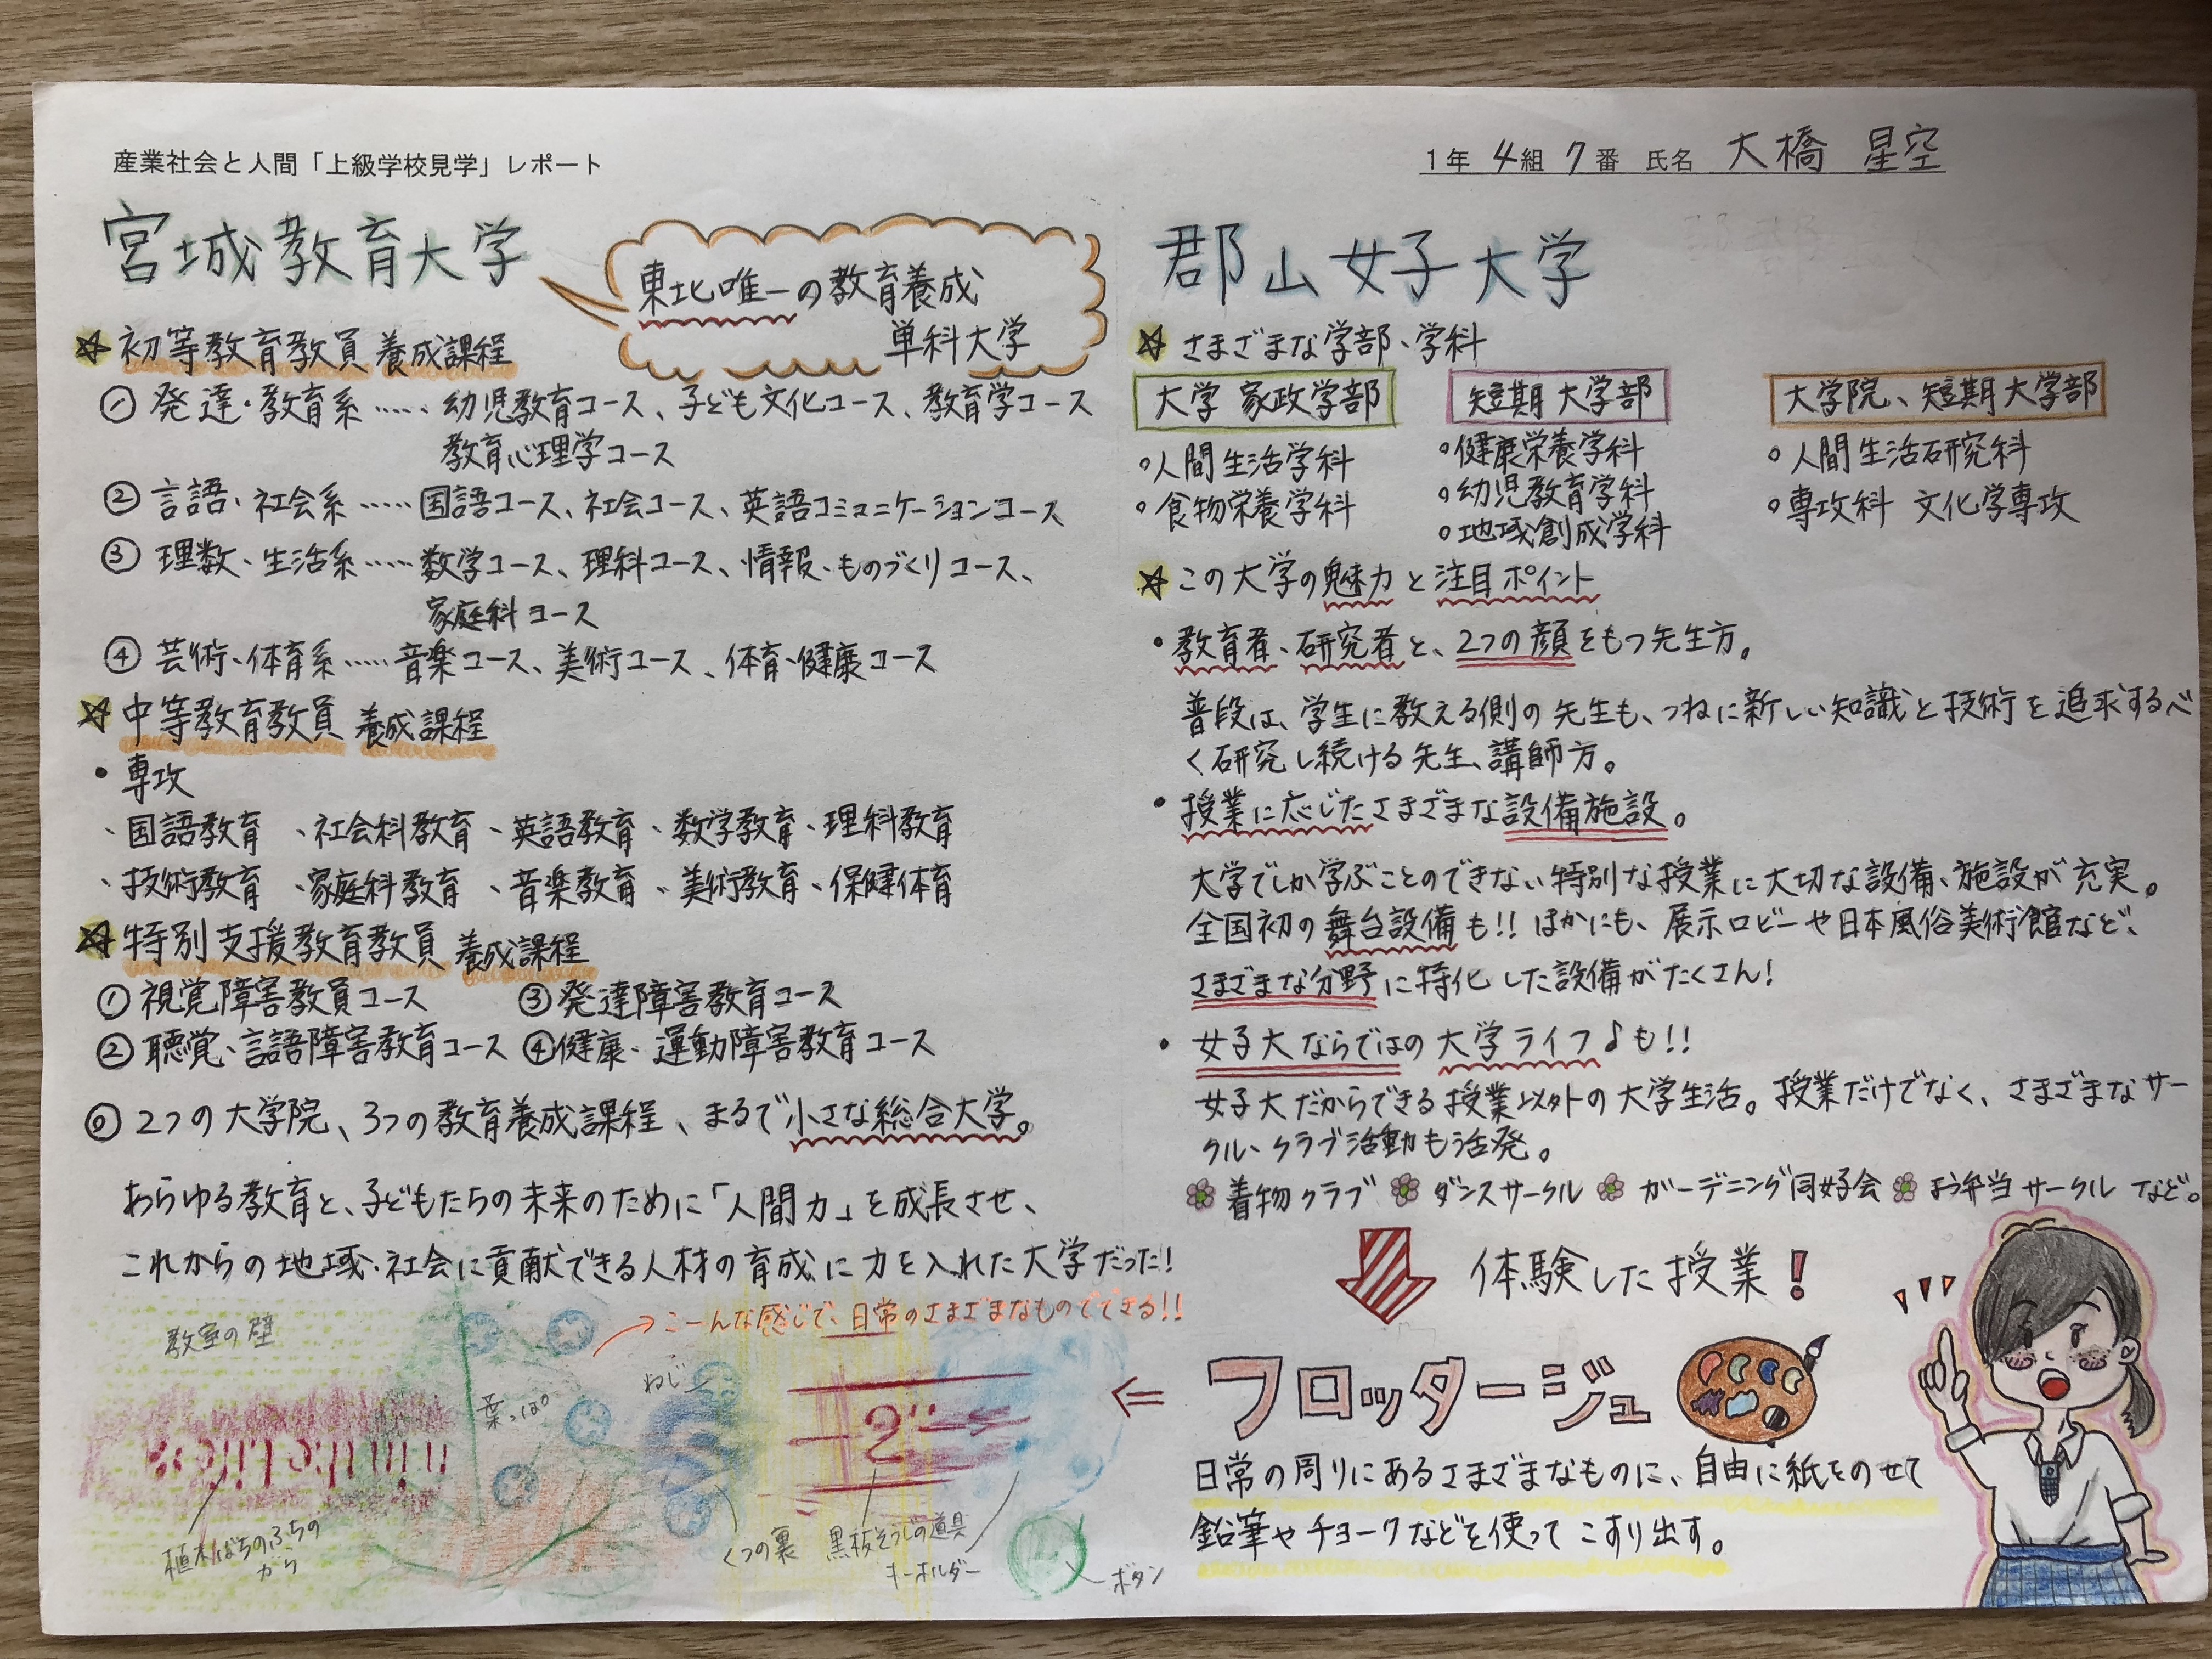 産業社会と人間「上級学校見学」レポート
1年 4組 7番 氏名 大橋 星空
宮城教育大学
東北唯一の教育養成
単科大学
☆初等教育教員 養成課程
① 発達・教育系 ‥‥‥ 幼児教育コース、子ども文化コース、教育学コース
教育心理学コース
② 言語・社会系 ‥‥‥ 国語コース、社会コース、英語コミュニケーションコース
③ 理数・生活系 ‥‥‥ 数学コース、理科コース、情報・ものづくりコース、
家庭科コース
④ 芸術・体育系 ‥‥‥ 音楽コース、美術コース、体育・健康コース
☆中等教育教員 養成課程
・専攻
、国語教育 、社会科教育 、英語教育 、数学教育 、理科教育
、技術教育 、家庭科教育 、音楽教育 、美術教育 、保健体育
☆特別支援教育教員 養成課程
① 視覚障害教員コース ③ 発達障害教育コース
② 聴覚・言語障害教育コース ④健康・運動障害教育コース
◎ 2つの大学院、3つの教育養成課程、まるで小さな総合大学。
あらゆる教育と、子どもたちの未来のために「人間力」を成長させ、
これからの地域・社会に貢献できる人材の育成に力を入れた大学だった!
→こーんな感じで、日常のさまざまなものでできる!!
教室の壁
葉っぱ
ねじ
2"
植木ばちのふちの
がら
くつの裏
黒板そうじの道具
キーホルダー
ボタン
郡山女子大学
☆ さまざまな学部、学科
大学 家政学部
短期大学部
大学院、短期大学部
。人間生活学科
。食物栄養学科
。健康栄養学科
。幼児教育学科
。地域創成学科
。人間生活研究科
。専攻科 文化学専攻
☆この大学の魅力と注目ポイント
・教育者、研究者と、2つの顔をもつ先生方。
普段は、学生に教える側の先生も、つねに新しい知識と技術を追求するべ
く研究し続ける先生、講師方。
・授業に応じたさまざまな設備施設。
大学でしか学ぶことのできない特別な授業に大切な設備、施設が充実。
全国初の舞台設備も!! ほかにも、展示ロビーや日本風俗美術館など、
さまざまな分野に特化した設備がたくさん!
・女子大ならではの大学ライフ♪も!!
女子大だからできる授業以外の大学生活。授業だけでなく、さまざまなサー
クル、クラブ活動も活発。
着物クラブ ダンスサークル ガーデニング同好会 お弁当サークル など。
体験した授業!
⇐ フロッタージュ
日常の周りにあるさまざまなものに、自由に紙をのせて
鉛筆やチョークなどを使ってこすり出す。